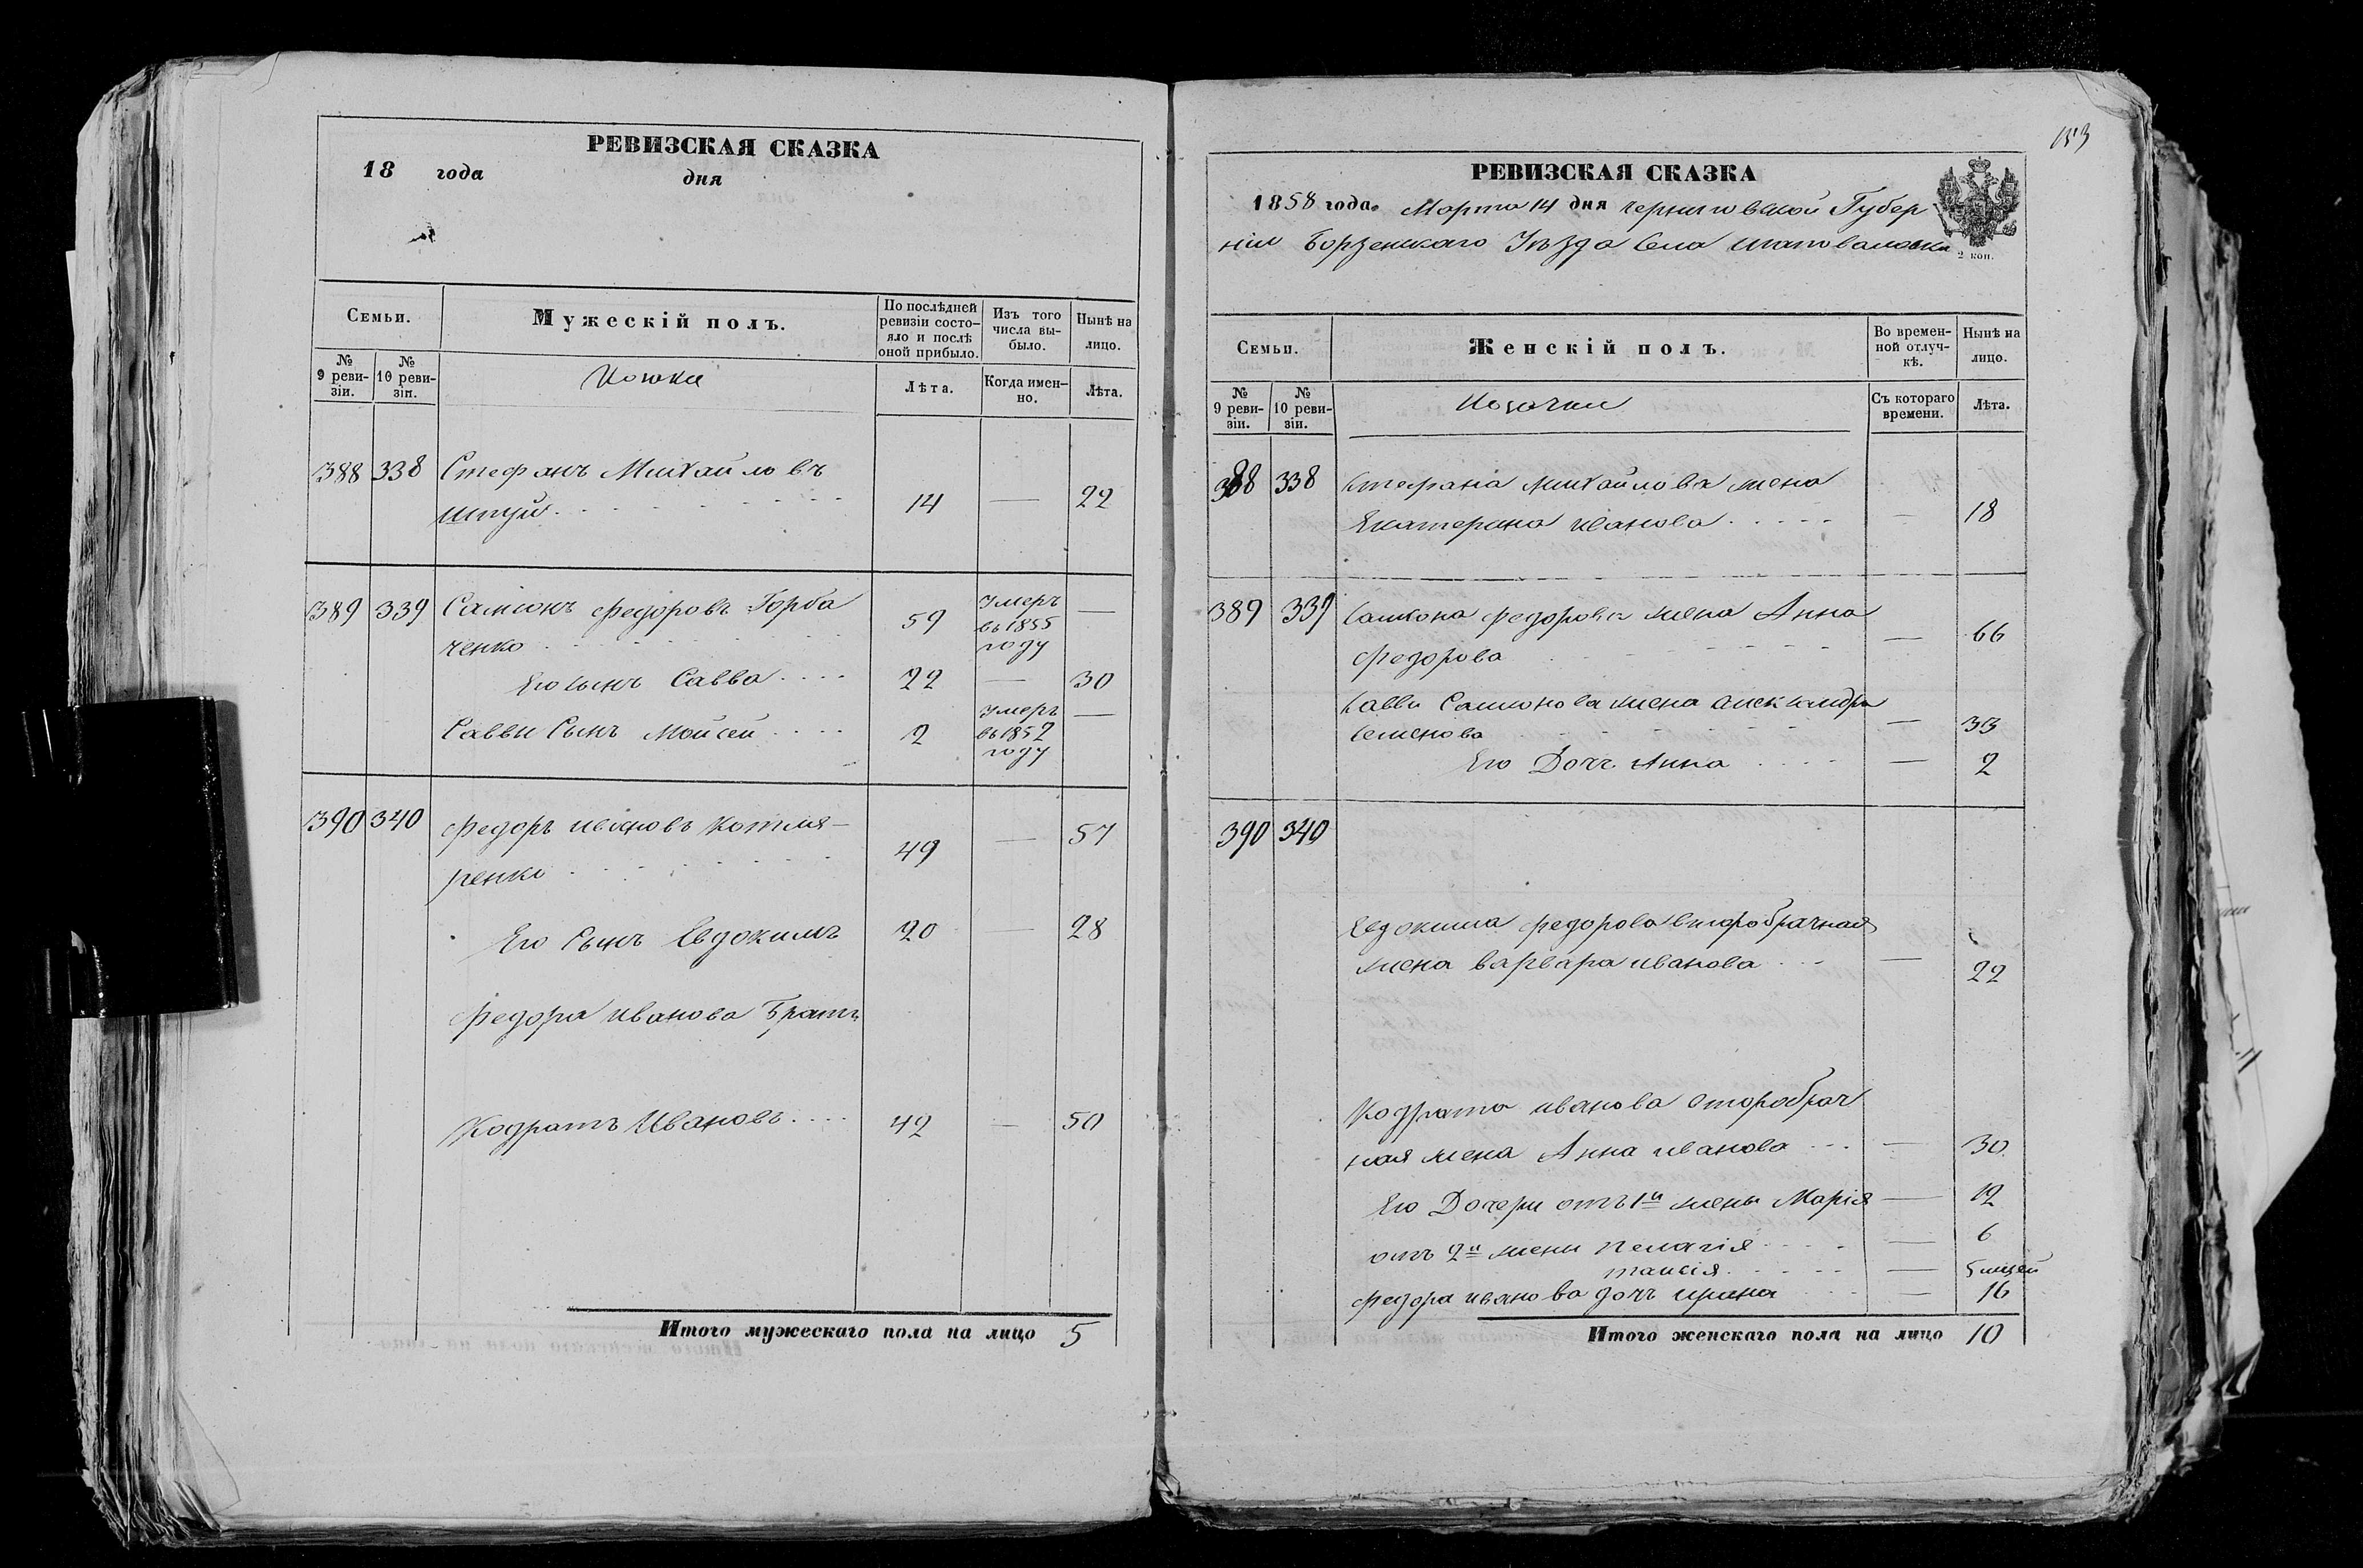 РЕВИЗСКАЯ СКАЗКА
18 года дня
Семьи.
Мужескій полъ.
По послѣдней ревизіи состо-
яло и послѣ оной прибыло.
Изъ того числа вы-
было.
Нынѣ на лицо.
№ 9 реви-
зіи.
№ 10 реви-
зіи.
Лѣта.
Когда имен-
но.
Лѣта.
388 338 Стефанъ Михайловъ
14 — 22
389 339 Самсонъ Федоровъ Горба
ченко 59 умеръ въ 1855 году —
Его сынъ Савва 22 — 30
Саввы Сынъ Мойсей 2 умеръ въ 1852 году —
390 340 Федоръ Ивановъ Котля-
ренко 49 — 57
Его Сынъ Евдокимъ 20 — 28
Федора Иванова Братъ
Кодратъ Ивановъ 42 — 50
Итого мужескаго пола на лицо 5
153
РЕВИЗСКАЯ СКАЗКА
1858 года Марта 14 дня Черниговской Губер
ніи Борзенскаго Уѣзда Села Шаповаловки
2 коп.
Семьи.
Женскій полъ.
Во времен-
ной отлуч-
кѣ.
Нынѣ на лицо.
№ 9 реви-
зіи.
№ 10 реви-
зіи.
Козачки
Съ котораго времени.
Лѣта.
388 338 Стефана Михайлова жена
Екатерина Иванова — 18
389 339 Самсона Федорова жена Анна
Федорова — 66
Саввы Самсонова жена Александра
Семенова — 33
Его Дочь Анна — 2
390 340
Евдокима Федорова второбрачная
жена Варвара Иванова — 22
Кодрата Иванова второбрач
ная жена Анна Иванова — 30
Его Дочери отъ 1й жены Марія — 12
отъ 2й жены Пелагія — 6
Таисія —
Федора Иванова дочь Ирина — 16
Итого женскаго пола на лицо 10